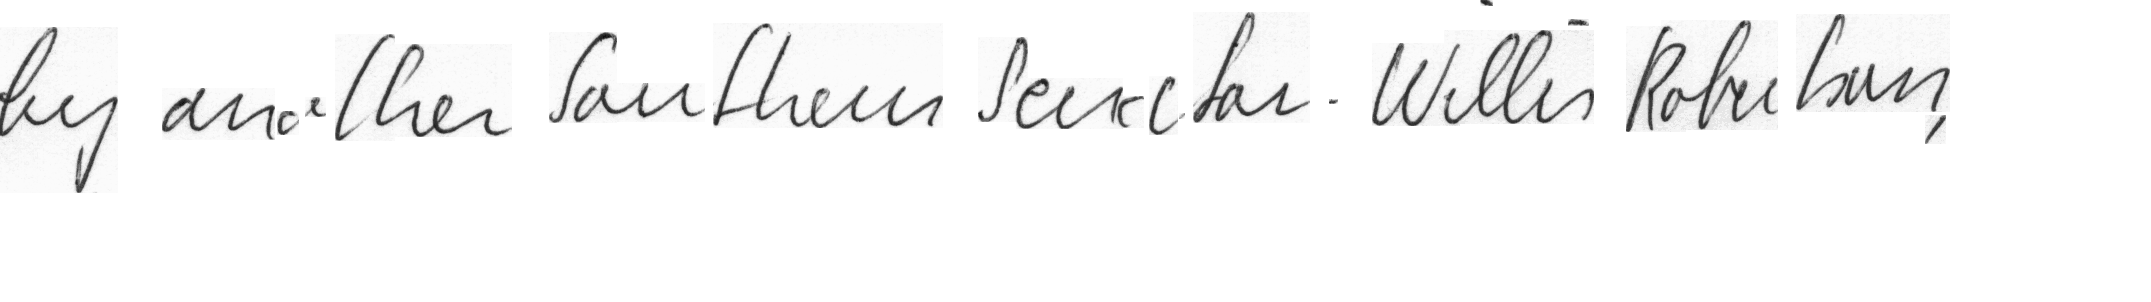 by another Southern Senator - Willis Robertson,